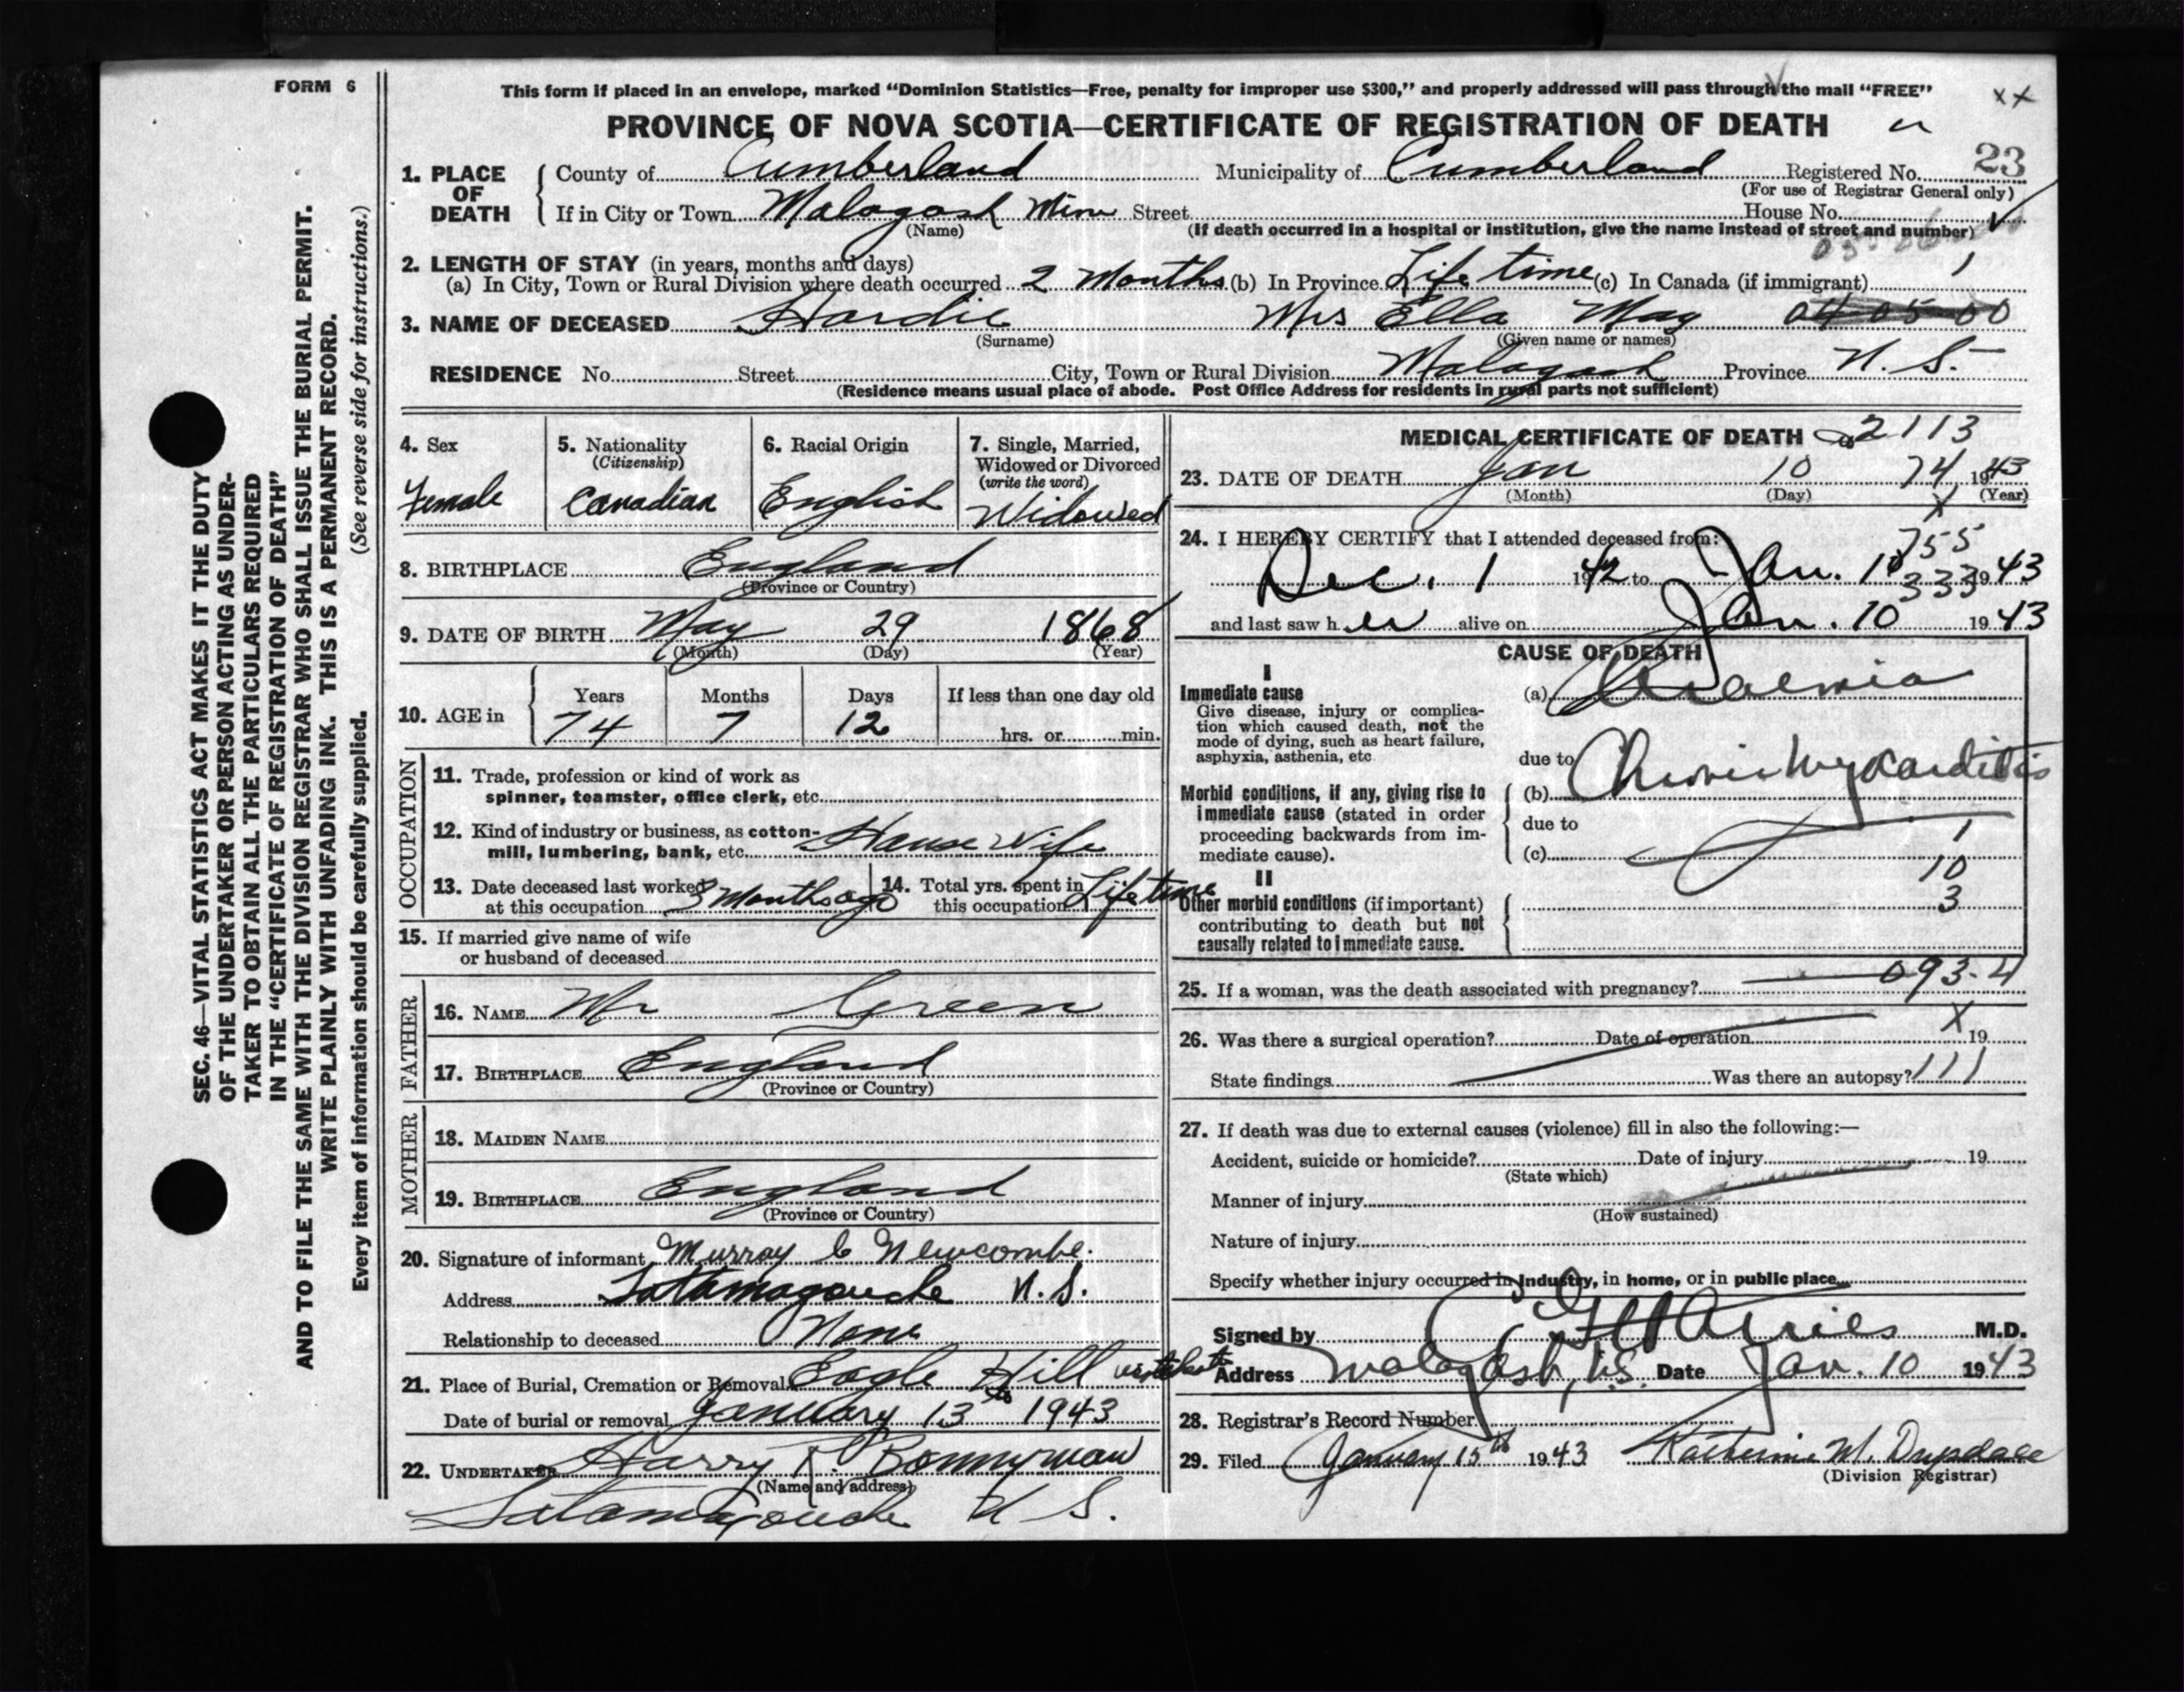 FORM 6
This form if placed in an envelope, marked "Dominion Statistics—Free, penalty for improper use $300," and properly addressed will pass through the mail "FREE"
PROVINCE OF NOVA SCOTIA—CERTIFICATE OF REGISTRATION OF DEATH
1. PLACE OF DEATH
County of Cumberland Municipality of Cumberland Registered No. 23
(For use of Registrar General only)
If in City or Town Malagash Mine Street House No.
(Name) (If death occurred in a hospital or institution, give the name instead of street and number)
2. LENGTH OF STAY (in years, months and days)
(a) In City, Town or Rural Division where death occurred 2 Months (b) In Province Life time (c) In Canada (if immigrant) 1
3. NAME OF DECEASED Hardie Mrs Ella May 04 05 00
(Surname) (Given name or names)
RESIDENCE No. Street City, Town or Rural Division Malagash Province N. S.
(Residence means usual place of abode. Post Office Address for residents in rural parts not sufficient)
4. Sex
Female
5. Nationality
(Citizenship)
Canadian
6. Racial Origin
English
7. Single, Married, Widowed or Divorced
(write the word)
Widowed
8. BIRTHPLACE England
(Province or Country)
9. DATE OF BIRTH May 29 1868
(Month) (Day) (Year)
10. AGE in
Years Months Days If less than one day old
74 7 12 hrs. or min.
OCCUPATION
11. Trade, profession or kind of work as
spinner, teamster, office clerk, etc.
12. Kind of industry or business, as cotton-
mill, lumbering, bank, etc. House Wife
13. Date deceased last worked
at this occupation 3 Months ago
14. Total yrs. spent in
this occupation Life time
15. If married give name of wife
or husband of deceased
FATHER
16. NAME Mr Green
17. BIRTHPLACE England
(Province or Country)
MOTHER
18. MAIDEN NAME
19. BIRTHPLACE England
(Province or Country)
20. Signature of informant Murray C Newcombe.
Address Tatamagouche N.S.
Relationship to deceased None
21. Place of Burial, Cremation or Removal Eagle Hill
Date of burial or removal January 13th 1943
22. UNDERTAKER Harry R. Bonnyman
(Name and address)
Tatamagouche N S.
MEDICAL CERTIFICATE OF DEATH 2113
23. DATE OF DEATH Jan 10 74 1943
(Month) (Day) (Year)
X
24. I HEREBY CERTIFY that I attended deceased from:
755
Dec. 1 1942 to Jan. 10 1943
333
and last saw her alive on Jan. 10 1943
CAUSE OF DEATH
I
Immediate cause
Give disease, injury or complica-
tion which caused death, not the
mode of dying, such as heart failure,
asphyxia, asthenia, etc
(a) Uraemia
due to
Morbid conditions, if any, giving rise to
immediate cause (stated in order
proceeding backwards from im-
mediate cause).
(b) Chronic Myocarditis
due to
(c)
1
10
3
II
Other morbid conditions (if important)
contributing to death but not
causally related to immediate cause.
093-4
25. If a woman, was the death associated with pregnancy?
X
26. Was there a surgical operation? Date of operation 19
State findings Was there an autopsy? 111
27. If death was due to external causes (violence) fill in also the following:—
Accident, suicide or homicide? Date of injury 19
(State which)
Manner of injury
(How sustained)
Nature of injury
Specify whether injury occurred in Industry, in home, or in public place
Signed by M.D.
Address Malagash, N.S. Date Jan. 10 1943
28. Registrar's Record Number
29. Filed January 15th 1943 Katherine M. Drysdale
(Division Registrar)
SEC. 46—VITAL STATISTICS ACT MAKES IT THE DUTY
OF THE UNDERTAKER OR PERSON ACTING AS UNDER-
TAKER TO OBTAIN ALL THE PARTICULARS REQUIRED
IN THE "CERTIFICATE OF REGISTRATION OF DEATH"
AND TO FILE THE SAME WITH THE DIVISION REGISTRAR WHO SHALL ISSUE THE BURIAL PERMIT.
WRITE PLAINLY WITH UNFADING INK. THIS IS A PERMANENT RECORD.
Every item of information should be carefully supplied. (See reverse side for instructions.)